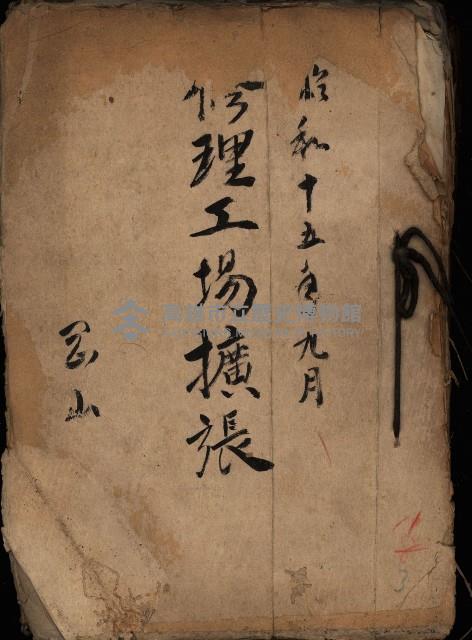 昭和十五年九月
修理工場擴張
岡山
高雄市立歷史博物館